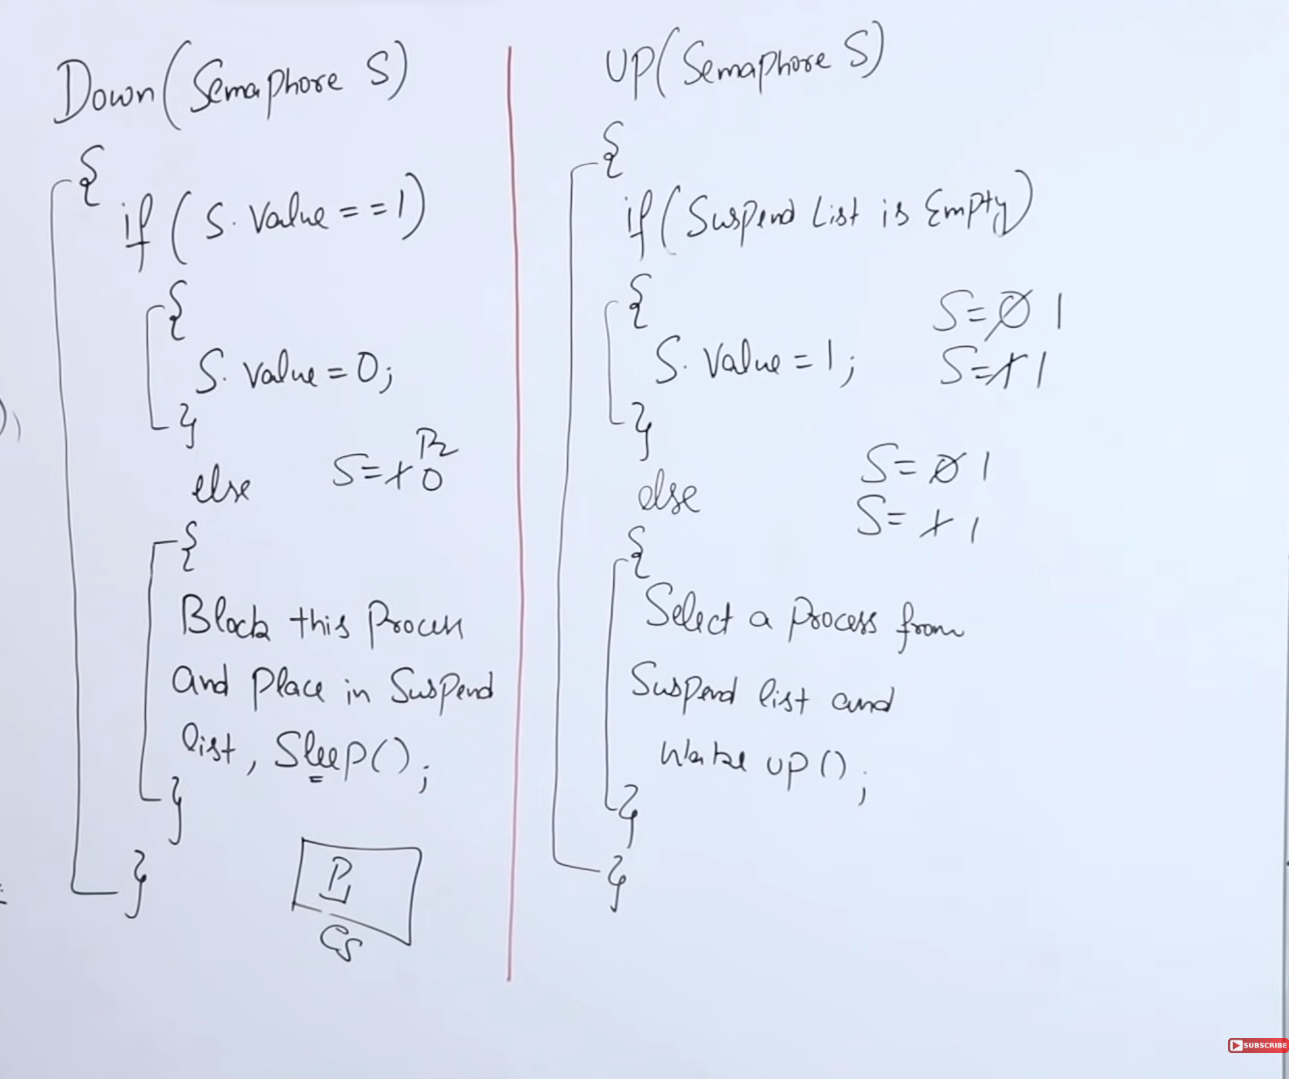 Down(Semaphore S)
{
if (S.Value==1)
{
S.Value=0;
}
else
S=1 0
P2
{
Block this Process
and Place in Suspend
list, Sleep();
}
}
P1
CS
UP(Semaphore S)
{
if(Suspend List is Empty)
{
S.Value=1;
}
S=0 1
S=1 1
else
S=0 1
S=1 1
{
Select a Process from
Suspend list and
Wake up();
}
}
SUBSCRIBE